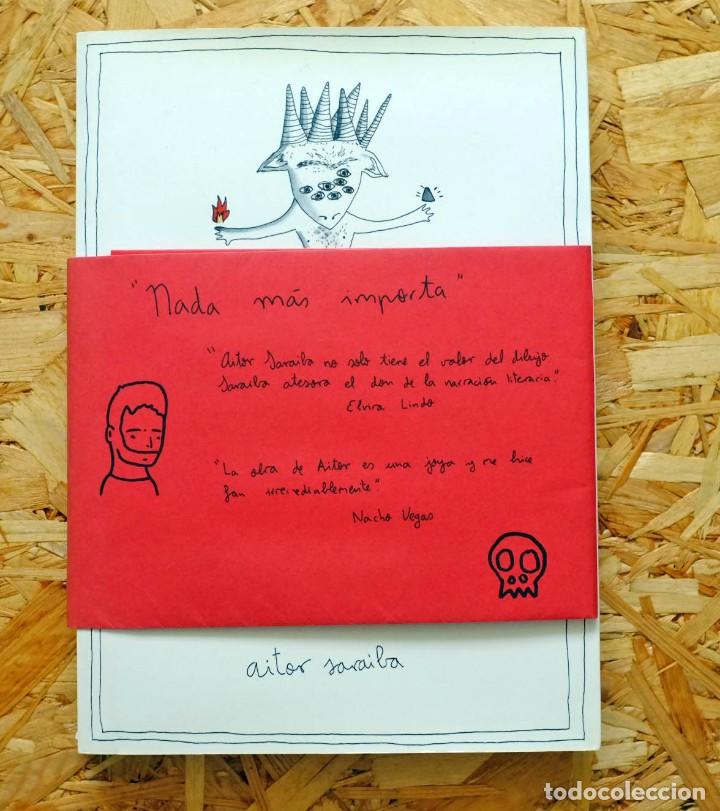 "Nada más importa"
"Aitor Saraiba no solo tiene el valor del dibujo
Saraiba atesora el don de la narración literaria".
Elvira Lindo
"La obra de Aitor es una joya y me hice
fan irremediablemente".
Nacho Vegas
aitor saraiba
todocoleccion